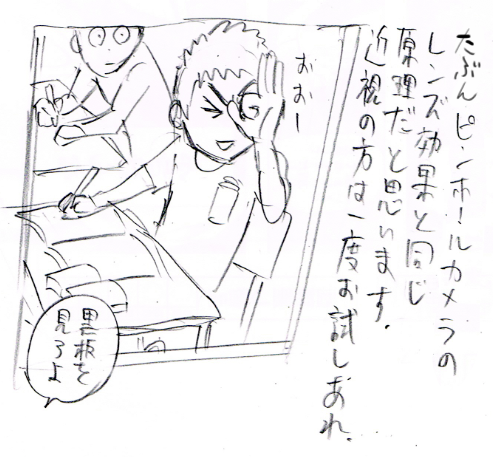 たぶんピンホールカメラの
レンズ効果と同じ
原理だと思います.
近視の方は一度お試しあれ.
おおー
黒板を
見ろよ